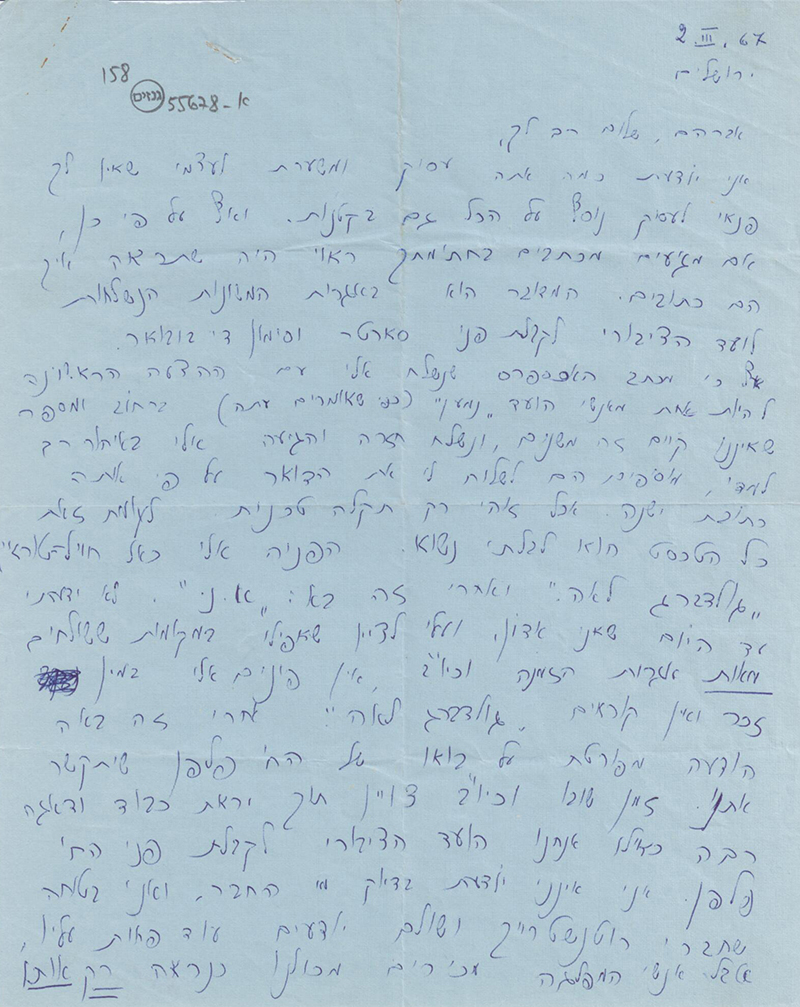 2.III.67
ירושלים
158
גנזים 55678-א
אברהם, שלום רב לך,
אני יודעת כמה אתה עסוק ומשערת לעצמי שאין לך
פנאי לעסוק נוסף על הכל גם בקטנות. ואף על פי כן,
אם מגיעים מכתבים בחתימתך ראוי היה שתראה איך
הם כתובים. המדובר הוא באגרות המשונות הנשלחות
לועד הציבורי לקבלת פני סארטר וסימון די בובואר.
אף כי מכתב האכספרס שנשלח אלי עם ההצעה הראשונה
להיות אחת מאנשי הועד "נמען" (כפי שאומרים עתה) ברחוב ומספר
שאיננו קיים זה משנים, ונשלח חזרה והגיעה אלי באיחור רב
למדי, מוסיפים הם לשלוח לי את הדואר על פי אותה
כתובת ישנה. אבל זוהי רק תקלה טכנית. לעומת זאת
כל הטכסט הוא לבלתי נשוא. הפניה אלי כאל
"גולדברג לאה" ואחרי זה בא: "א.נ.". לא ידעתי
עד היום שאני אדון, ועלי לציין שאפילו במקומות ששולחים
מאות אגרות הזמנה וכיו"ב, אין פונים אלי במין
זכר ואין קוראים "גולדברג לאה"! אחרי זה באה
הודעה מפורטת על בואו של הח' פלפן שיתקשר
אתנו. זמן שובו וכיו"ב צויין תוך יראת כבוד ודאגה
רבה כאילו אנחנו הועד הציבורי לקבלת פני הח'
פלפן. אני אינני יודעת בדיוק מי החבר, ואני בטוחה
שחברי רוטנשטרייך ושולם יודעים עוד פחות עליו,
אבל אנשי המפלגה מכירים מכולנו כנראה רק אותו